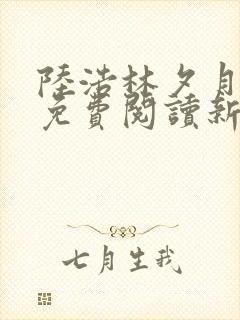 陸浩林夕月
免費閱讀新
七月生我